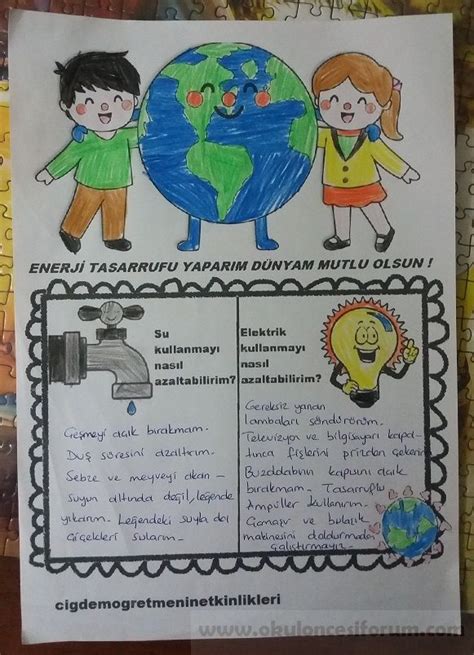 ENERJİ TASARRUFU YAPARIM DÜNYAM MUTLU OLSUN !
Su
kullanmayı
nasıl
azaltabilirim?
Çeşmeyi açık bırakmam.
Duş süresini azaltırım.
Sebze ve meyveyi akan
suyun altında değil, leğende
yıkarım. Leğendeki suyla da
çiçekleri sularım.
Elektrik
kullanmayı
nasıl
azaltabilirim?
Gereksiz yanan
lambaları söndürürüm.
Televizyon ve bilgisayarı kapa-
tınca fişlerini prizden çekerim
Buzdabbının kapısını açık
bırakmam. Tasarruflu
Ampüller kullanırım.
Çamaşır ve bulaşık
makinesini doldurmadan
çalıştırmayız.
cigdemogretmeninetkinlikleri
www.okuloncesiforum.com